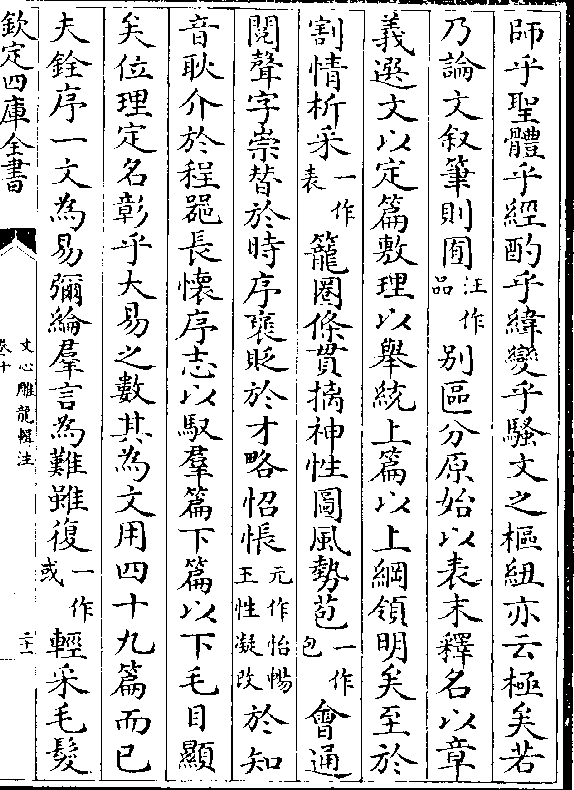 師乎聖體乎經酌乎緯變乎騷文之樞紐亦云極矣若
乃論文叙筆則囿汪作品别區分原始以表末釋名以章
義選文以定篇敷理以舉統上篇以上綱領明矣至於
割情析采一作表籠圈條貫摛神性圖風勢苞一作包會通
閱聲字崇替於時序褒貶於才略怊悵元作怡暢王性凝改於知
音耿介於程器長懷序志以馭羣篇下篇以下毛目顯
矣位理定名彰乎大易之數其為文用四十九篇而已
夫銓序一文為易彌綸羣言為難雖復一作或輕采毛髮
欽定四庫全書
文心雕龍輯注
卷十
二十一